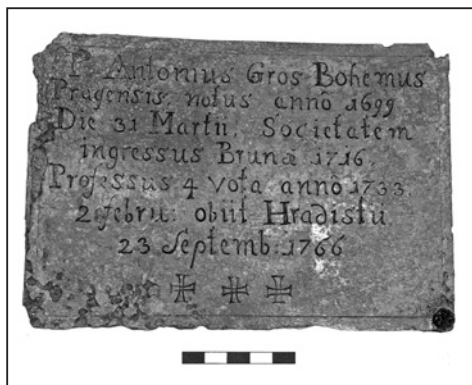 P. Antonius Gros Bohemus
Pragensis, notus anno 1699
Die 31 Martii, Societatem
ingressus Brunæ 1716.
Professus 4 vota anno 1733.
2 febru: obiit Hradistii
23 Septemb: 1766